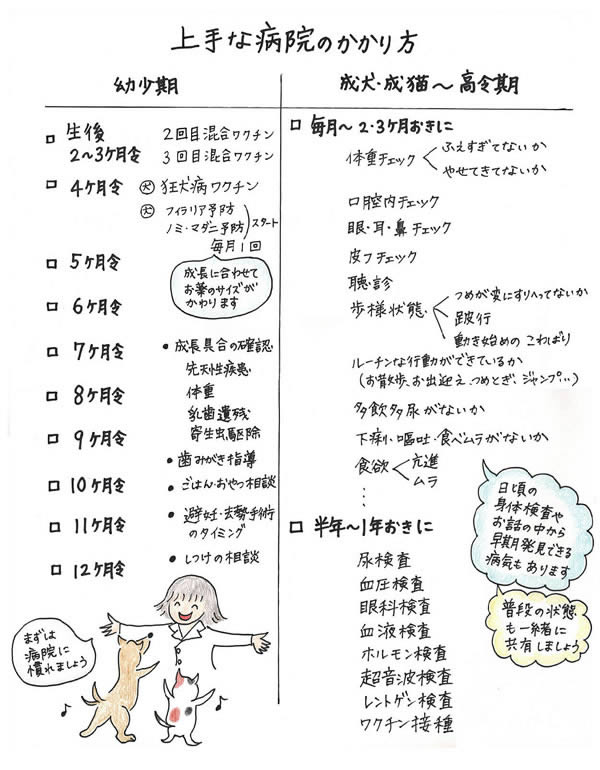 上手な病院のかかり方
幼少期
生後
2〜3ヶ月令
2回目混合ワクチン
3回目混合ワクチン
4ヶ月令
犬 狂犬病ワクチン
犬 フィラリア予防
ノミ・マダニ予防
スタート
毎月1回
5ヶ月令
成長に合わせて
お薬のサイズが
かわります
6ヶ月令
7ヶ月令
• 成長具合の確認
先天性疾患
体重
乳歯遺残
寄生虫駆除
8ヶ月令
9ヶ月令
• 歯みがき指導
10ヶ月令
• ごはん・おやつ相談
11ヶ月令
• 避妊・去勢手術
のタイミング
12ヶ月令
• しつけの相談
まずは
病院に
慣れましょう
成犬・成猫〜高令期
毎月〜2・3ヶ月おきに
体重チェック
ふえすぎてないか
やせてきてないか
口腔内チェック
眼・耳・鼻チェック
皮フチェック
聴・診
歩様状態
つめが変にすりへってないか
跛行
動き始めのこわばり
ルーチンな行動ができているか
(お散歩、お出迎え、つめとぎ、ジャンプ…)
多飲多尿がないか
下痢・嘔吐・食べムラがないか
食欲
亢進
ムラ
⋮
日頃の
身体検査や
お話の中から
早期発見できる
病気もあります
半年〜1年おきに
尿検査
血圧検査
眼科検査
血液検査
ホルモン検査
超音波検査
レントゲン検査
ワクチン接種
普段の状態
も一緒に
共有しましょう